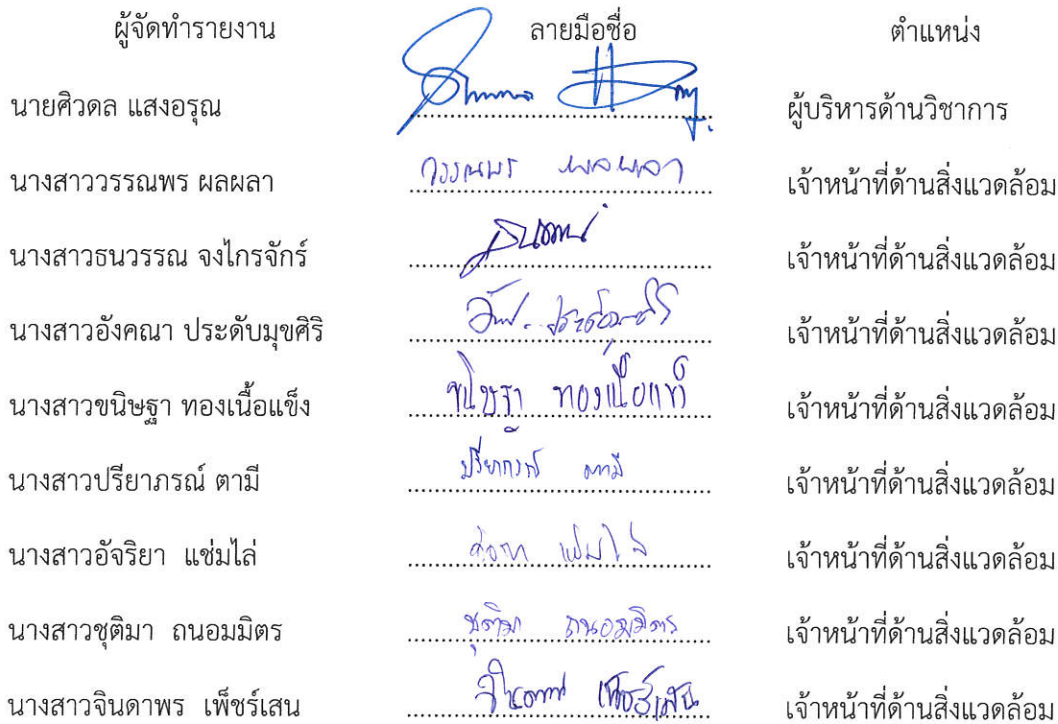 ผู้จัดทำรายงาน ลายมือชื่อ ตำแหน่ง
นายศิวดล แสงอรุณ ผู้บริหารด้านวิชาการ
นางสาววรรณพร ผลผลา วรรณพร ผลผลา เจ้าหน้าที่ด้านสิ่งแวดล้อม
นางสาวธนวรรณ จงไกรจักร์ เจ้าหน้าที่ด้านสิ่งแวดล้อม
นางสาวอังคณา ประดับมุขศิริ เจ้าหน้าที่ด้านสิ่งแวดล้อม
นางสาวขนิษฐา ทองเนื้อแข็ง ขนิษฐา ทองเนื้อแข็ง เจ้าหน้าที่ด้านสิ่งแวดล้อม
นางสาวปรียาภรณ์ ตามี ปรียาภรณ์ ตามี เจ้าหน้าที่ด้านสิ่งแวดล้อม
นางสาวอัจริยา แช่มไล่ เจ้าหน้าที่ด้านสิ่งแวดล้อม
นางสาวชุติมา ถนอมมิตร ชุติมา ถนอมมิตร เจ้าหน้าที่ด้านสิ่งแวดล้อม
นางสาวจินดาพร เพ็ชร์เสน จินดาพร เพ็ชร์เสน เจ้าหน้าที่ด้านสิ่งแวดล้อม